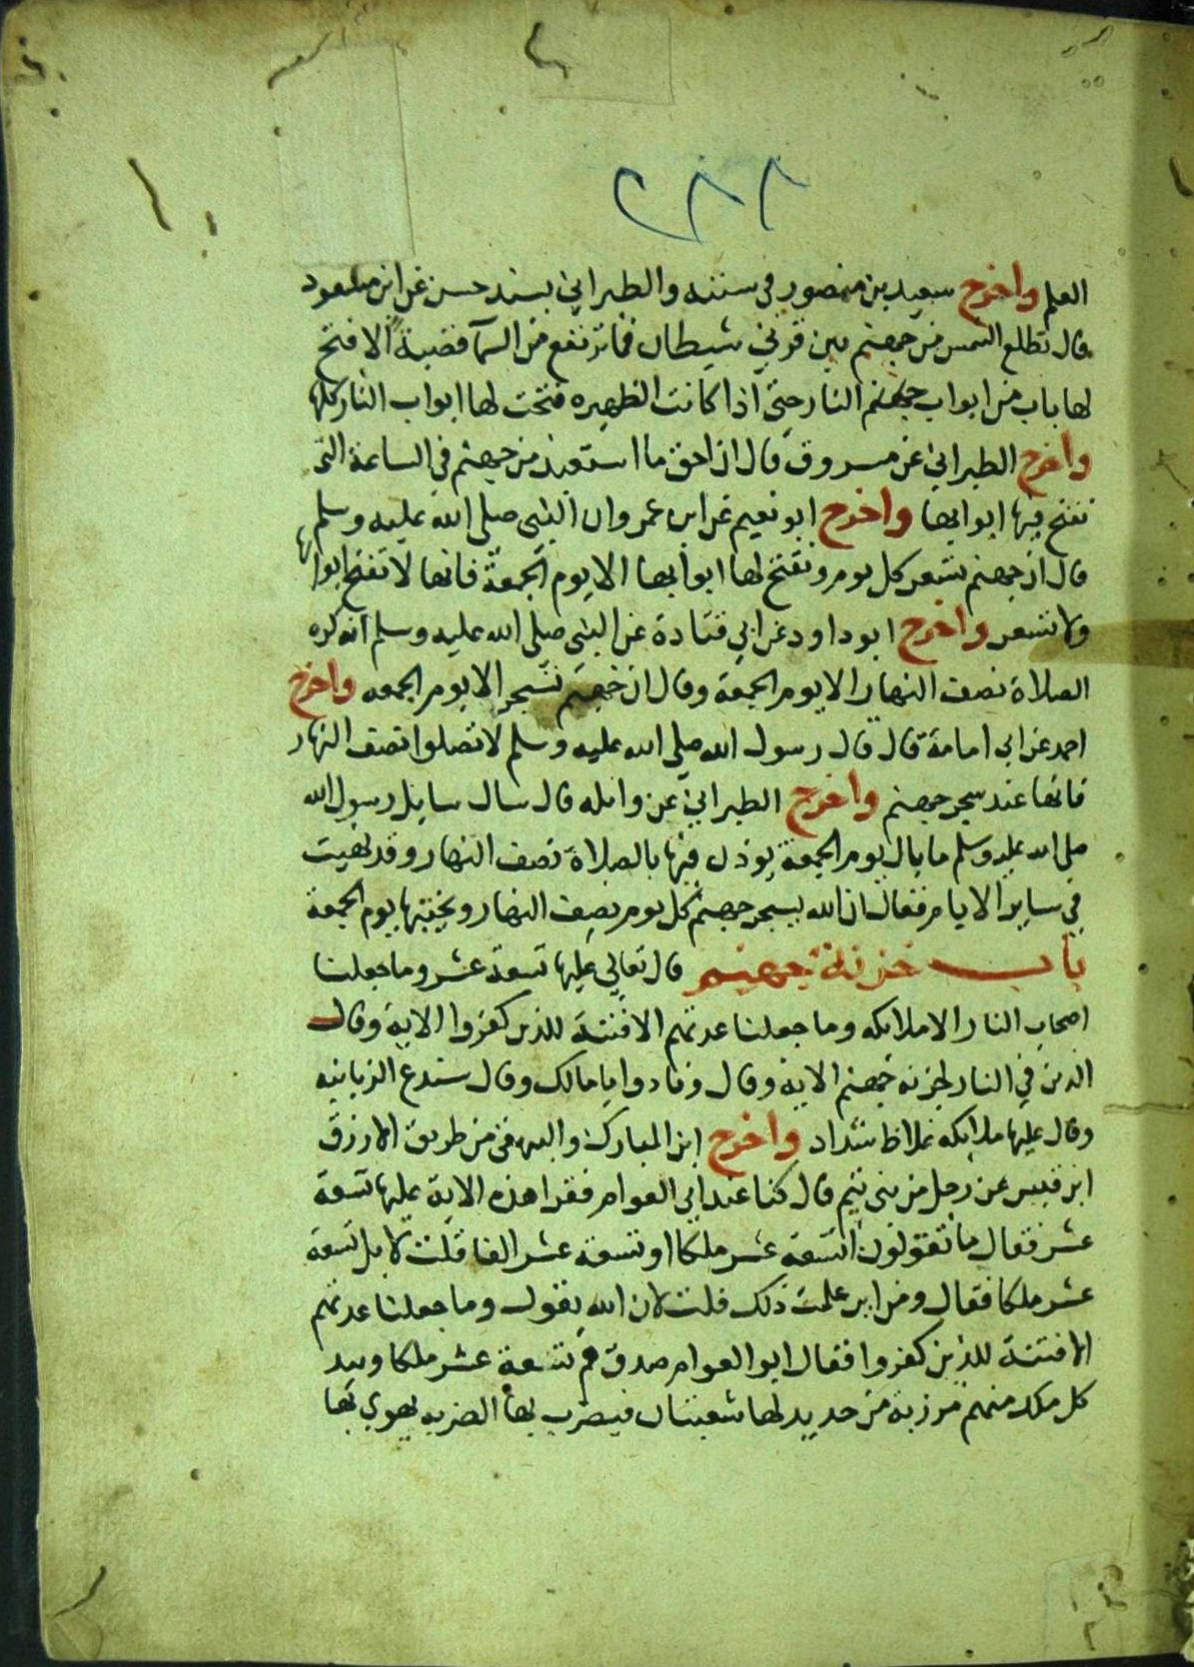 العلم واخرج سعيد بن منصور في سننه والطبراني بسند حسن عن ابن مسعود
قال تطلع الشمس من جهنم بين قرني شيطان فما ترتفع من السما قصبة الا فتح
لها باب من ابواب جهنم النار حتى اذا كانت الظهيره فتحت لها ابواب النار كلها
واخرج الطبراني عن مسروق قال ان احق ما استعيذ من جهنم في الساعة التى
تفتح فيها ابوابها واخرج ابو نعيم عن ابن عمرو ان النبي صلى الله عليه وسلم
قال ان جهنم تسعر كل يوم وتفتح لها ابوابها الا يوم الجمعة فانها لا تفتح ابوابها
ولا تسعر واخرج ابو داود عن ابي قتادة عن النبي صلى الله عليه وسلم انه كره
الصلاة نصف النهار الا يوم الجمعة وقال ان جهنم تسجر الا يوم الجمعه واخرج
احمد عن ابى امامة قال قال رسول الله صلى الله عليه وسلم لا تصلوا نصف النهار
فانها عند سجر جهنم واخرج الطبراني عن واثله قال سال سايل رسول الله
صلى الله عليه وسلم ما بال يوم الجمعة يوذن فيها بالصلاة نصف النهار وقد نهيت
في ساير الايام فقال ان الله يسجر جهنم كل يوم نصف النهار ويخبتها يوم الجمعة
باب خزنة جهنم قال تعالى عليها تسعة عشر وما جعلنا
اصحاب النار الا ملايكه وما جعلنا عدتهم الا فتنة للذين كفروا الاية وقال
الذين في النار لخزنه جهنم الاية وقال ونادوا يا مالك وقال سندع الزبانيه
وقال عليها ملايكه غلاظ شداد واخرج ابن المبارك والبيهقى من طريق الازرق
ابن قيس عن رجل من بنى تميم قال كنا عند ابى العوام فقرا هذه الاية عليها تسعة
عشر فقال ما تقولون اتسعة عشر ملكا او تسعة عشر الفا قلت لا بل تسعة
عشر ملكا فقال ومن اين علمت ذلك قلت لان الله يقول وما جعلنا عدتهم
الا فتنة للذين كفروا فقال ابو العوام صدقت هم تسعة عشر ملكا وبيد
كل ملك منهم مرزبة من حديد لها شعبتان فيضرب بها الضربه يهوي بها